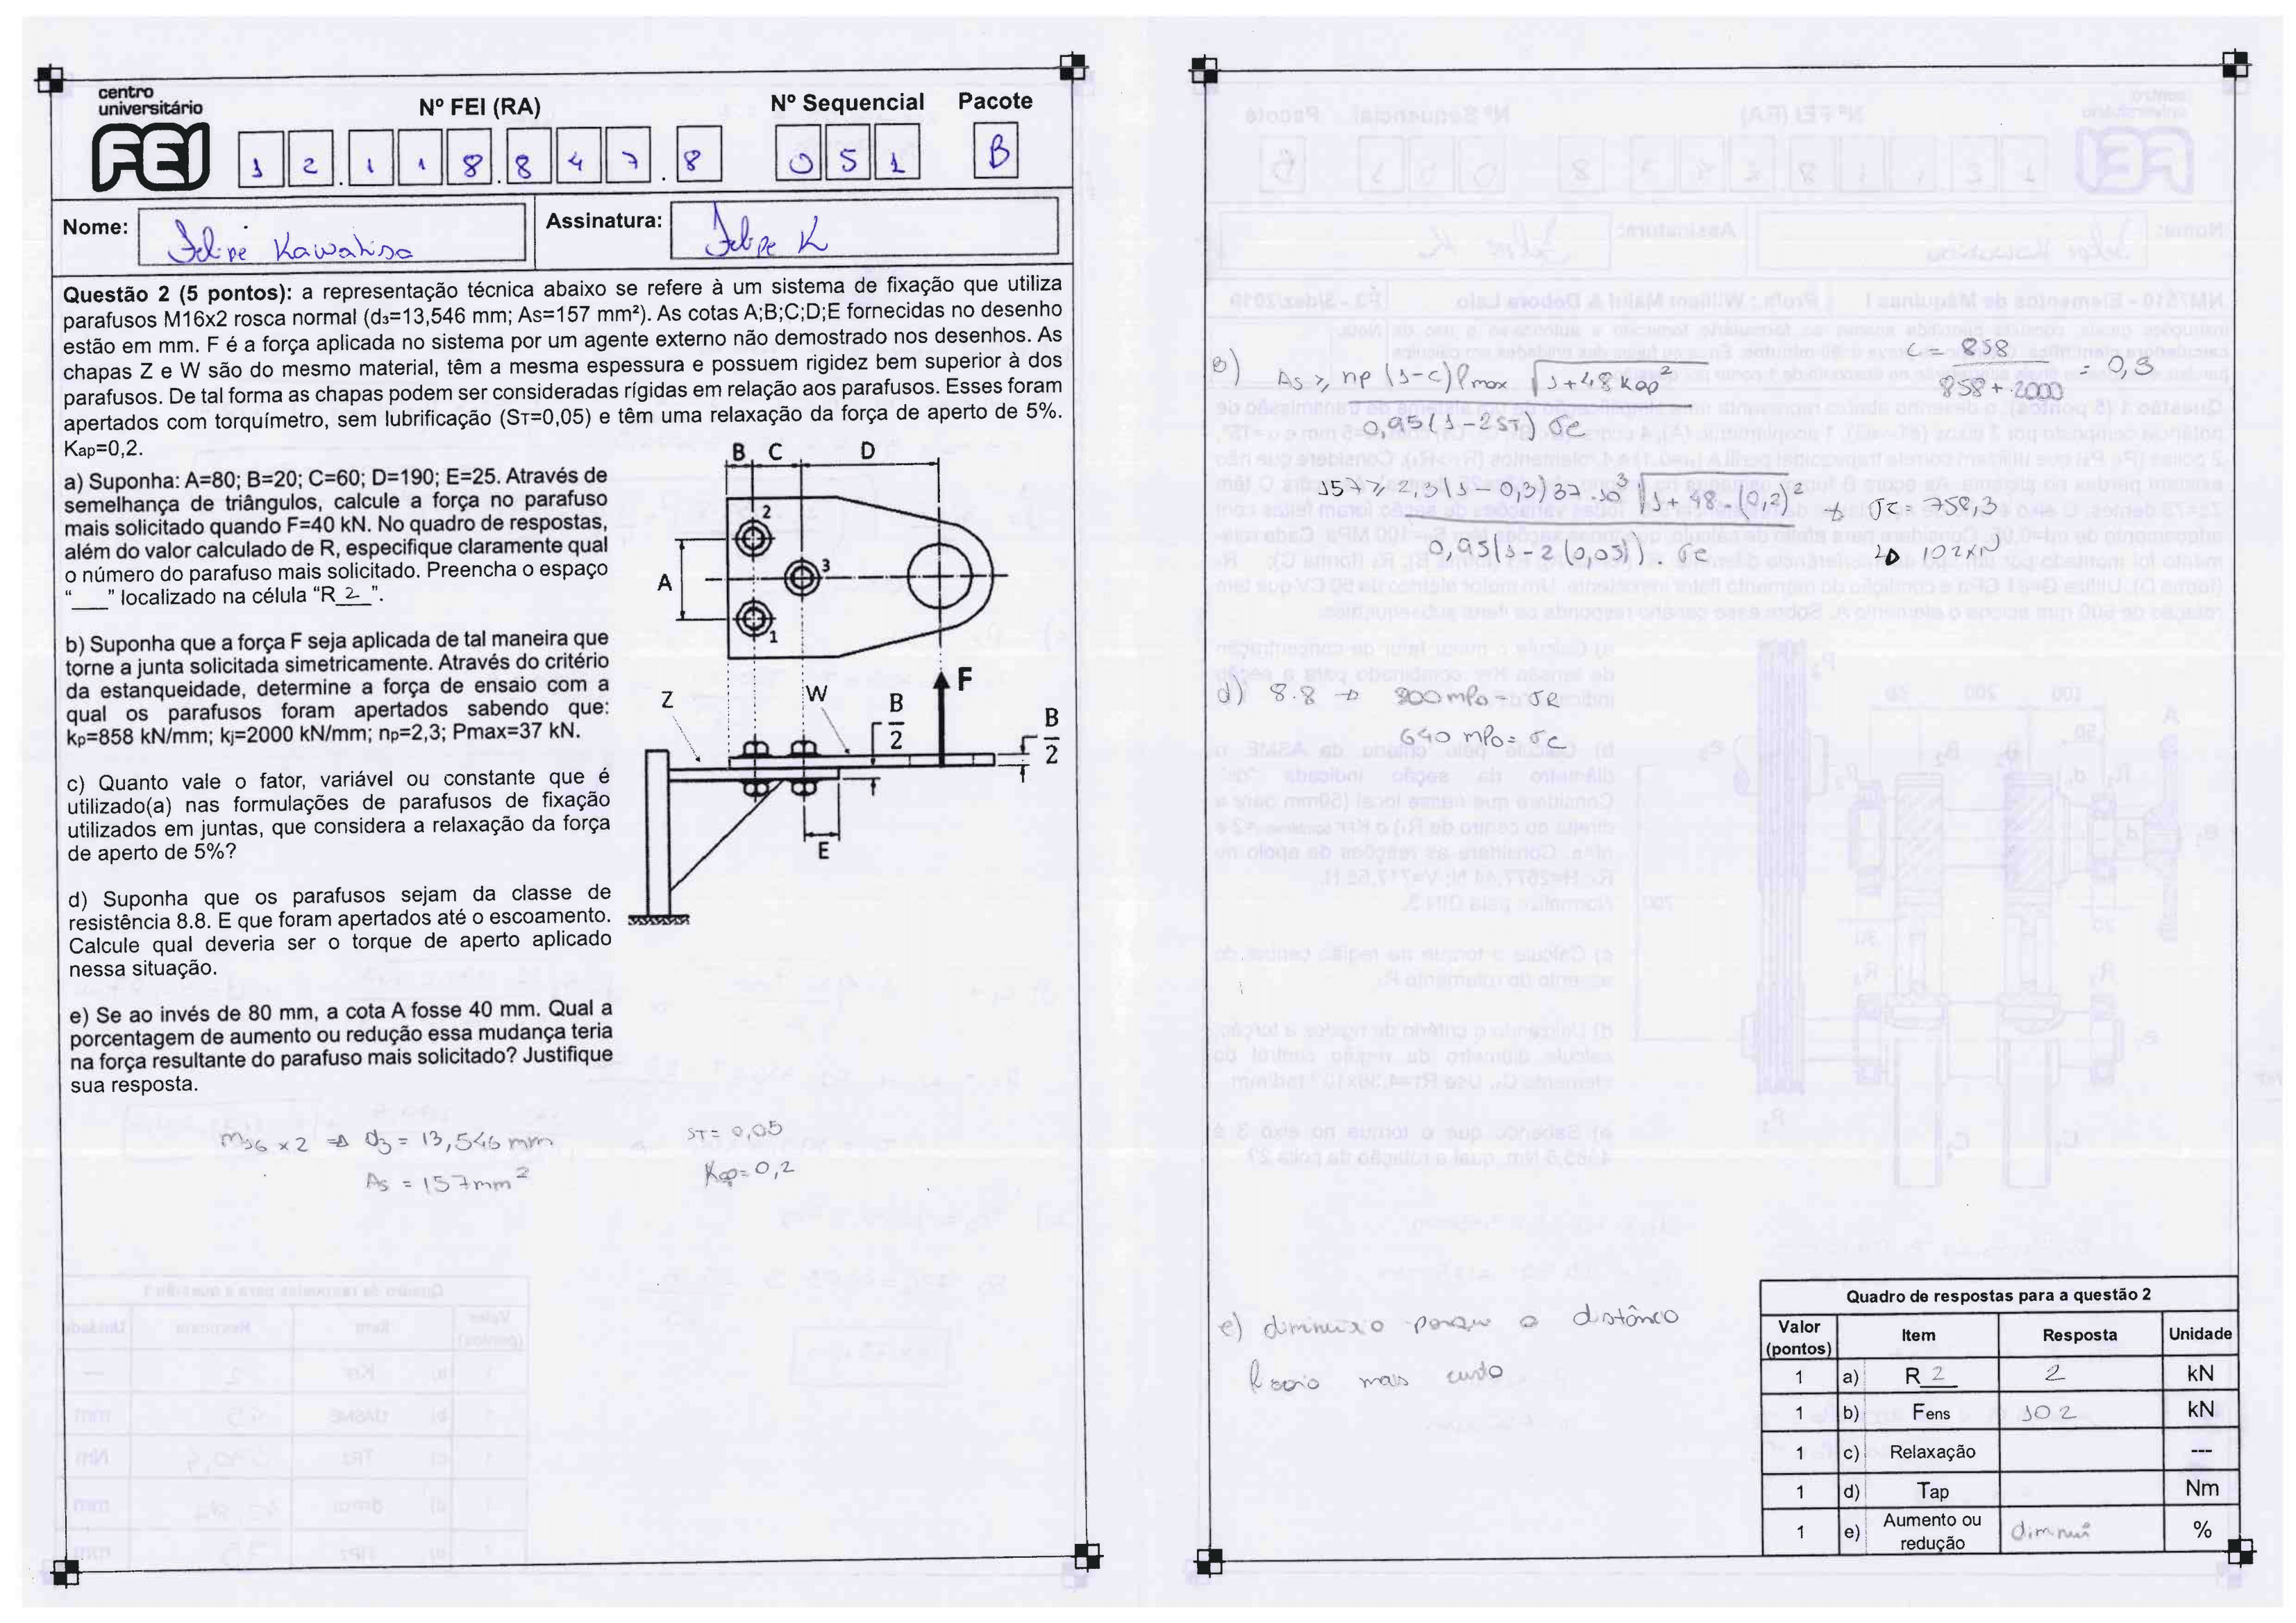 centro
universitário
FEI
Nº FEI (RA)
Nº Sequencial
Pacote
1 2 . 1 1 8 . 8 4 7 . 8
0 5 1
B
Nome: Felipe Kawahisa
Assinatura: Felipe K
Questão 2 (5 pontos): a representação técnica abaixo se refere à um sistema de fixação que utiliza
parafusos M16x2 rosca normal (d₃=13,546 mm; As=157 mm²). As cotas A;B;C;D;E fornecidas no desenho
estão em mm. F é a força aplicada no sistema por um agente externo não demostrado nos desenhos. As
chapas Z e W são do mesmo material, têm a mesma espessura e possuem rigidez bem superior à dos
parafusos. De tal forma as chapas podem ser consideradas rígidas em relação aos parafusos. Esses foram
apertados com torquímetro, sem lubrificação (Sᴛ=0,05) e têm uma relaxação da força de aperto de 5%.
Kap=0,2.
a) Suponha: A=80; B=20; C=60; D=190; E=25. Através de
semelhança de triângulos, calcule a força no parafuso
mais solicitado quando F=40 kN. No quadro de respostas,
além do valor calculado de R, especifique claramente qual
o número do parafuso mais solicitado. Preencha o espaço
“___” localizado na célula “R_2_”.
b) Suponha que a força F seja aplicada de tal maneira que
torne a junta solicitada simetricamente. Através do critério
da estanqueidade, determine a força de ensaio com a
qual os parafusos foram apertados sabendo que:
kp=858 kN/mm; kj=2000 kN/mm; np=2,3; Pmax=37 kN.
c) Quanto vale o fator, variável ou constante que é
utilizado(a) nas formulações de parafusos de fixação
utilizados em juntas, que considera a relaxação da força
de aperto de 5%?
d) Suponha que os parafusos sejam da classe de
resistência 8.8. E que foram apertados até o escoamento.
Calcule qual deveria ser o torque de aperto aplicado
nessa situação.
e) Se ao invés de 80 mm, a cota A fosse 40 mm. Qual a
porcentagem de aumento ou redução essa mudança teria
na força resultante do parafuso mais solicitado? Justifique
sua resposta.
B C D
2
3
A
1
F
Z
W
B
2
B
2
E
M16 x 2 ⇒ d3 = 13,546 mm
As = 157 mm²
ST = 0,05
Kap = 0,2
B) As ≥ np (1-c) Pmax √1+48 Kap²
0,95 (1-2ST) σe
C = 858 = 0,3
858+2000
157 ≥ 2,3 (1-0,3) 37.10³ √1+48.(0,2)²
0,95 (1-2(0,05)) . σe
σe 758,3
102 kN
d) 8.8 ⇒ 800 mPa = σR
640 mPa = σe
e) diminuiro porque a distância
ficaria mais curto
Quadro de respostas para a questão 2
Valor (pontos) Item Resposta Unidade
1 a) R_2_ 2 kN
1 b) Fens 102 kN
1 c) Relaxação ---
1 d) Tap Nm
1 e) Aumento ou redução diminui %